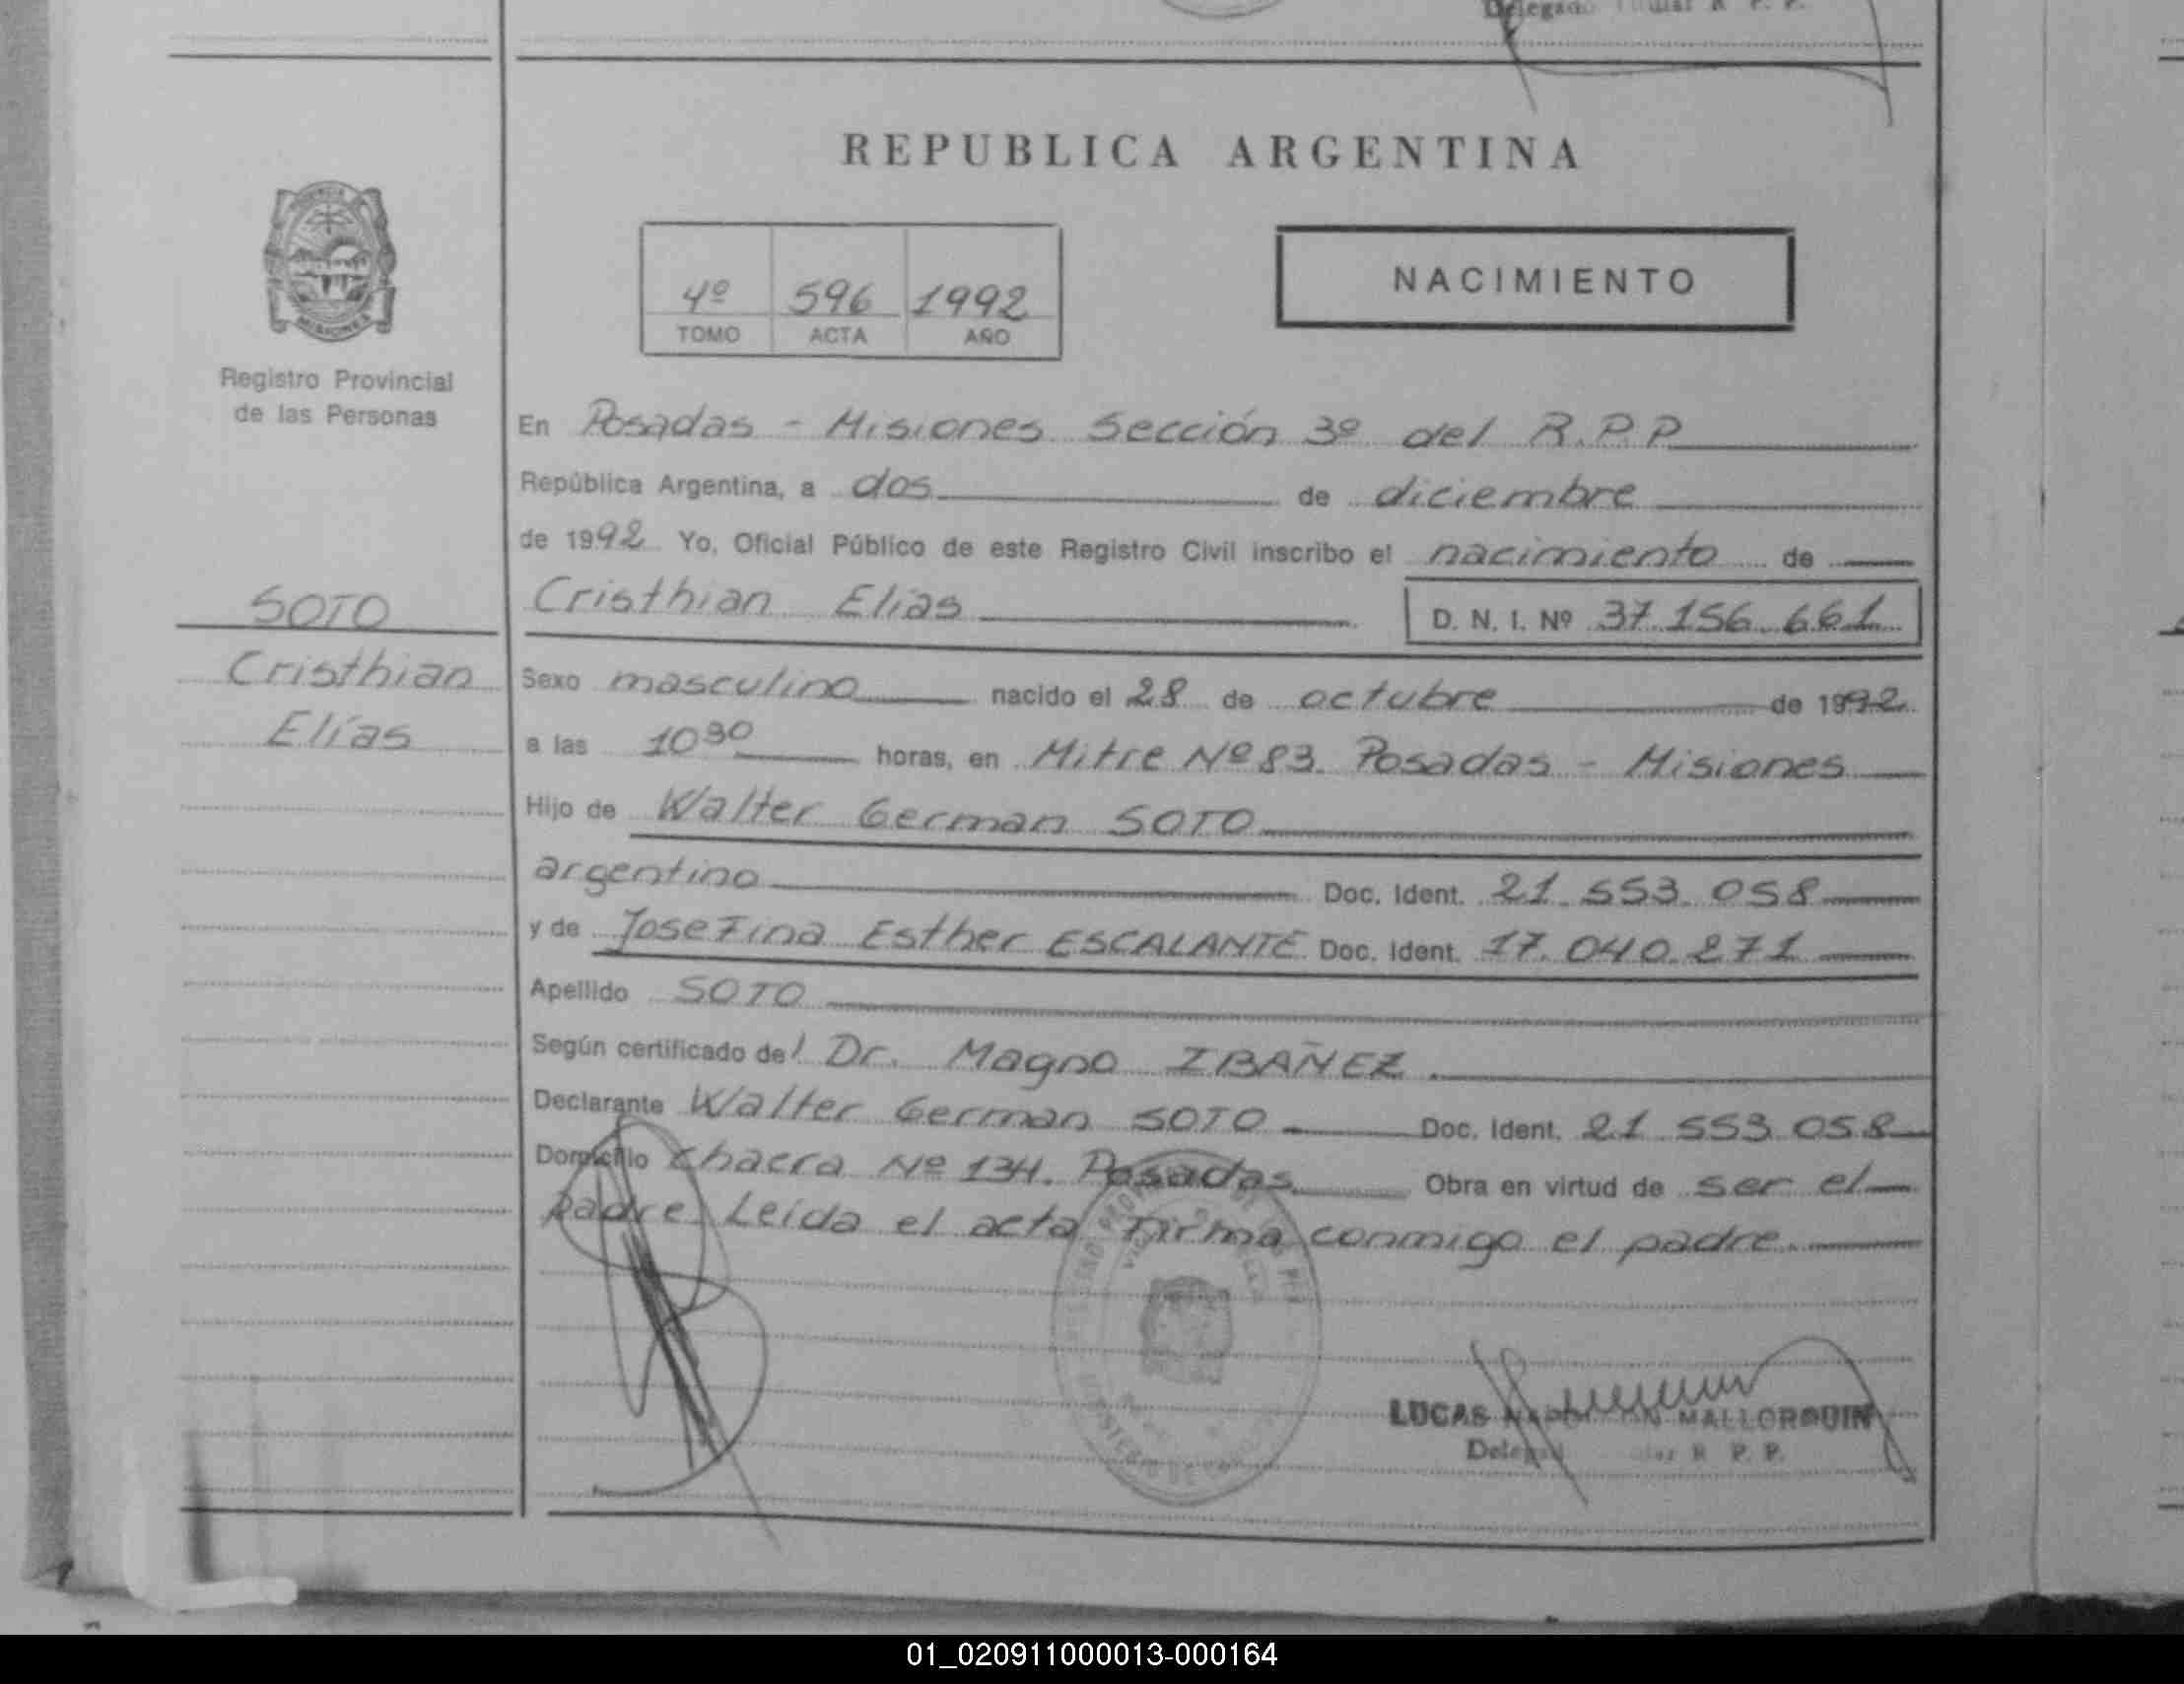 Delegado Titular R P. P.
REPUBLICA ARGENTINA
4º 596 1992
TOMO ACTA AÑO
NACIMIENTO
MISIONES
Registro Provincial
de las Personas
En Posadas - Misiones Sección 3º del R.P.P
República Argentina, a dos de diciembre
de 1992 Yo, Oficial Público de este Registro Civil inscribo el nacimiento de
SOTO
Cristhian Elías
D. N. I. Nº 37.156.661
Cristhian
Sexo masculino nacido el 28 de octubre de 1992
Elías
a las 10 30 horas, en Mitre Nº 83. Posadas - Misiones
Hijo de Walter German SOTO
argentino Doc. Ident. 21.553.058
y de Josefina Esther ESCALANTE Doc. Ident. 17.040.271
Apellido SOTO
Según certificado del Dr. Magno IBAÑEZ.
Declarante Walter German SOTO Doc. Ident. 21 553 058
Domicilio Chacra Nº 134. Posadas Obra en virtud de ser el
padre. Leída el acta firma conmigo el padre.
LUCAS MALLORQUIN
R P. P.
01_020911000013-000164